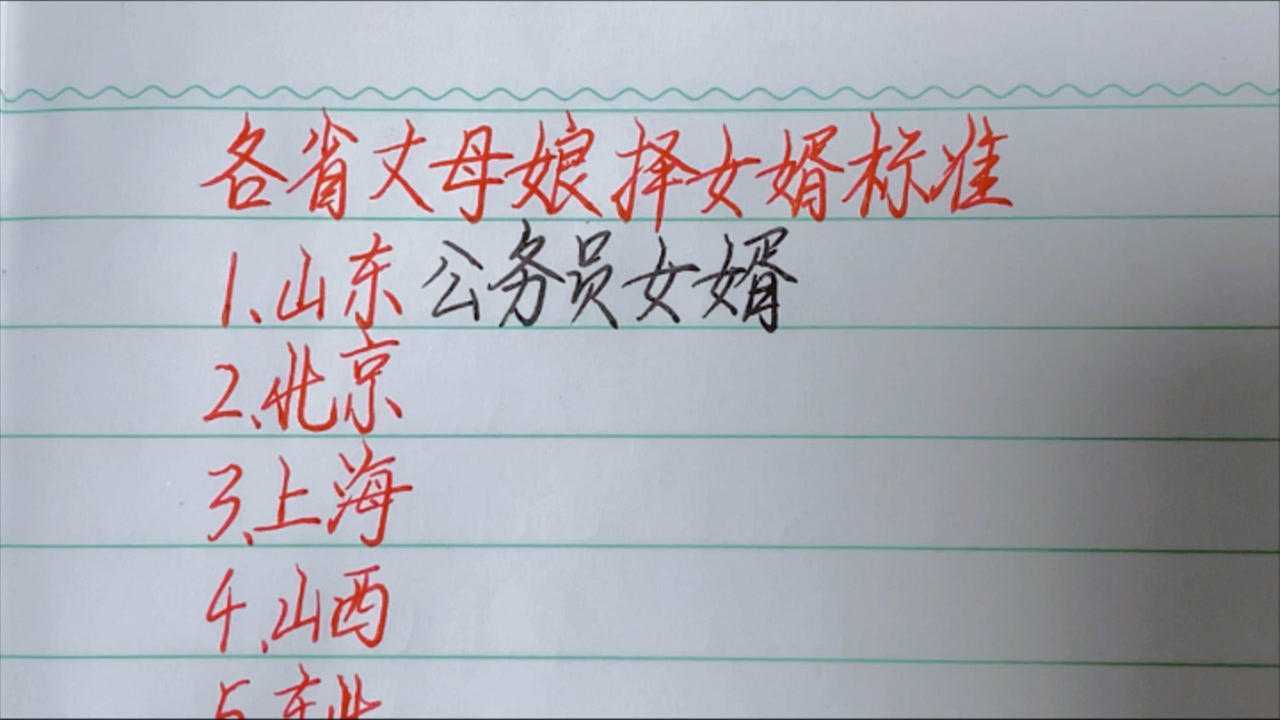 各省丈母娘择女婿标准
1、山东 公务员女婿
2、北京
3、上海
4、山西
5、东北